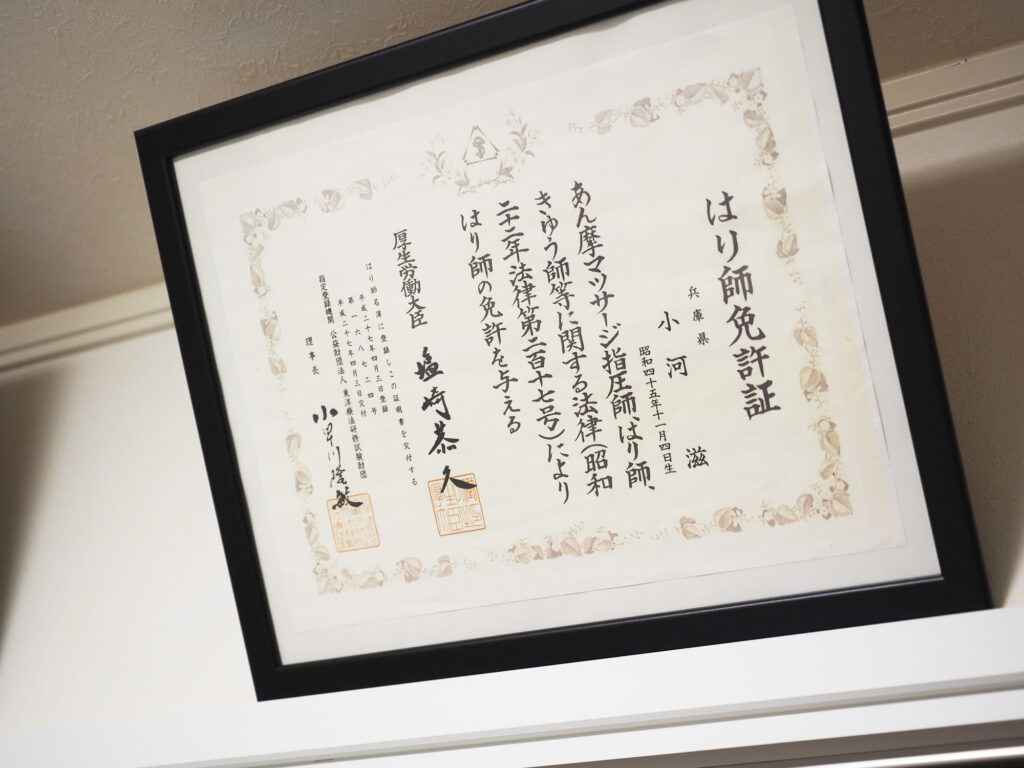 はり師免許証
兵庫県
小河 滋
昭和四十五年十一月四日生
あん摩マツサージ指圧師、はり師、
きゆう師等に関する法律(昭和
二十二年法律第二百十七号)により
はり師の免許を与える
厚生労働大臣 塩崎恭久
はり師名簿に登録しこの証明書を交付する
平成二十七年四月三日登録
第一六八七二四号
平成二十七年四月三日交付
指定登録機関 公益財団法人 東洋療法研修試験財団
理事長 小早川隆敏